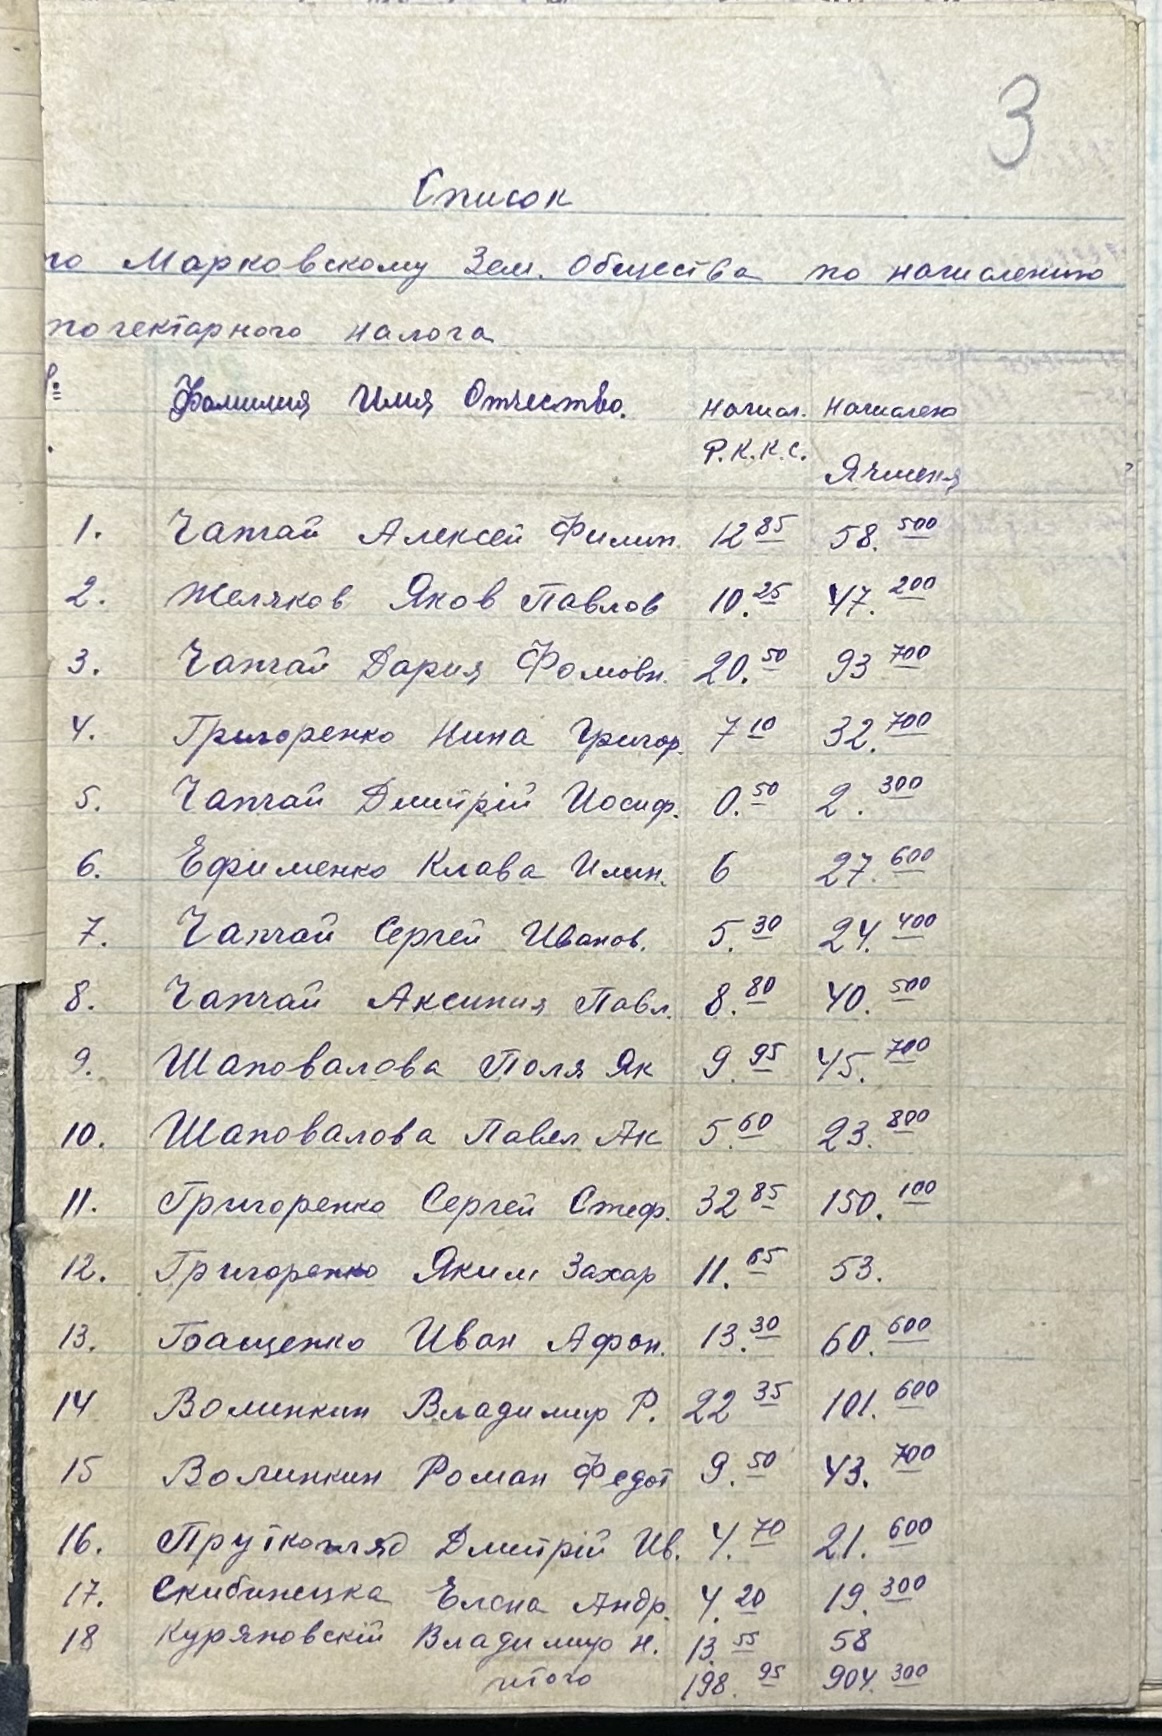 3
Список
по Марковскому Зем. Общества по начислению
погектарного налога
№ Фамилия Имя Отчество. Начисл. Начислено
Р.К.К.С. Ячменя
1. Чапчай Алексей Филип. 12 85 58. 500
2. Желяков Яков Павлов 10. 25 47. 200
3. Чапчай Дария Фомовн. 20. 50 93 700
4. Григоренко Нина Григор. 7 10 32. 700
5. Чапчай Дмитрій Иосиф. 0. 50 2. 300
6. Ефименко Клава Илин. 6 27. 600
7. Чапчай Сергей Иванов. 5. 30 24. 400
8. Чапчай Аксиния Павл. 8. 80 40. 500
9. Шаповалова Поля Як 9. 95 45. 700
10. Шаповалова Павел Ак 5. 60 23. 800
11. Григоренко Сергей Стеф. 32 85 150. 100
12. Григоренко Яким Захар 11. 65 53.
13. Бащенко Иван Афон. 13. 30 60. 600
14 Волинкин Владимир Р. 22 35 101. 600
15 Волинкин Роман Федот 9. 50 43. 700
16. Пруткогляд Дмитрій Ив. 4. 70 21. 600
17. Скибинецка Елена Андр. 4. 20 19. 300
18 Куряновскій Владимир Н. 13. 55 58
итого 198. 95 904. 300